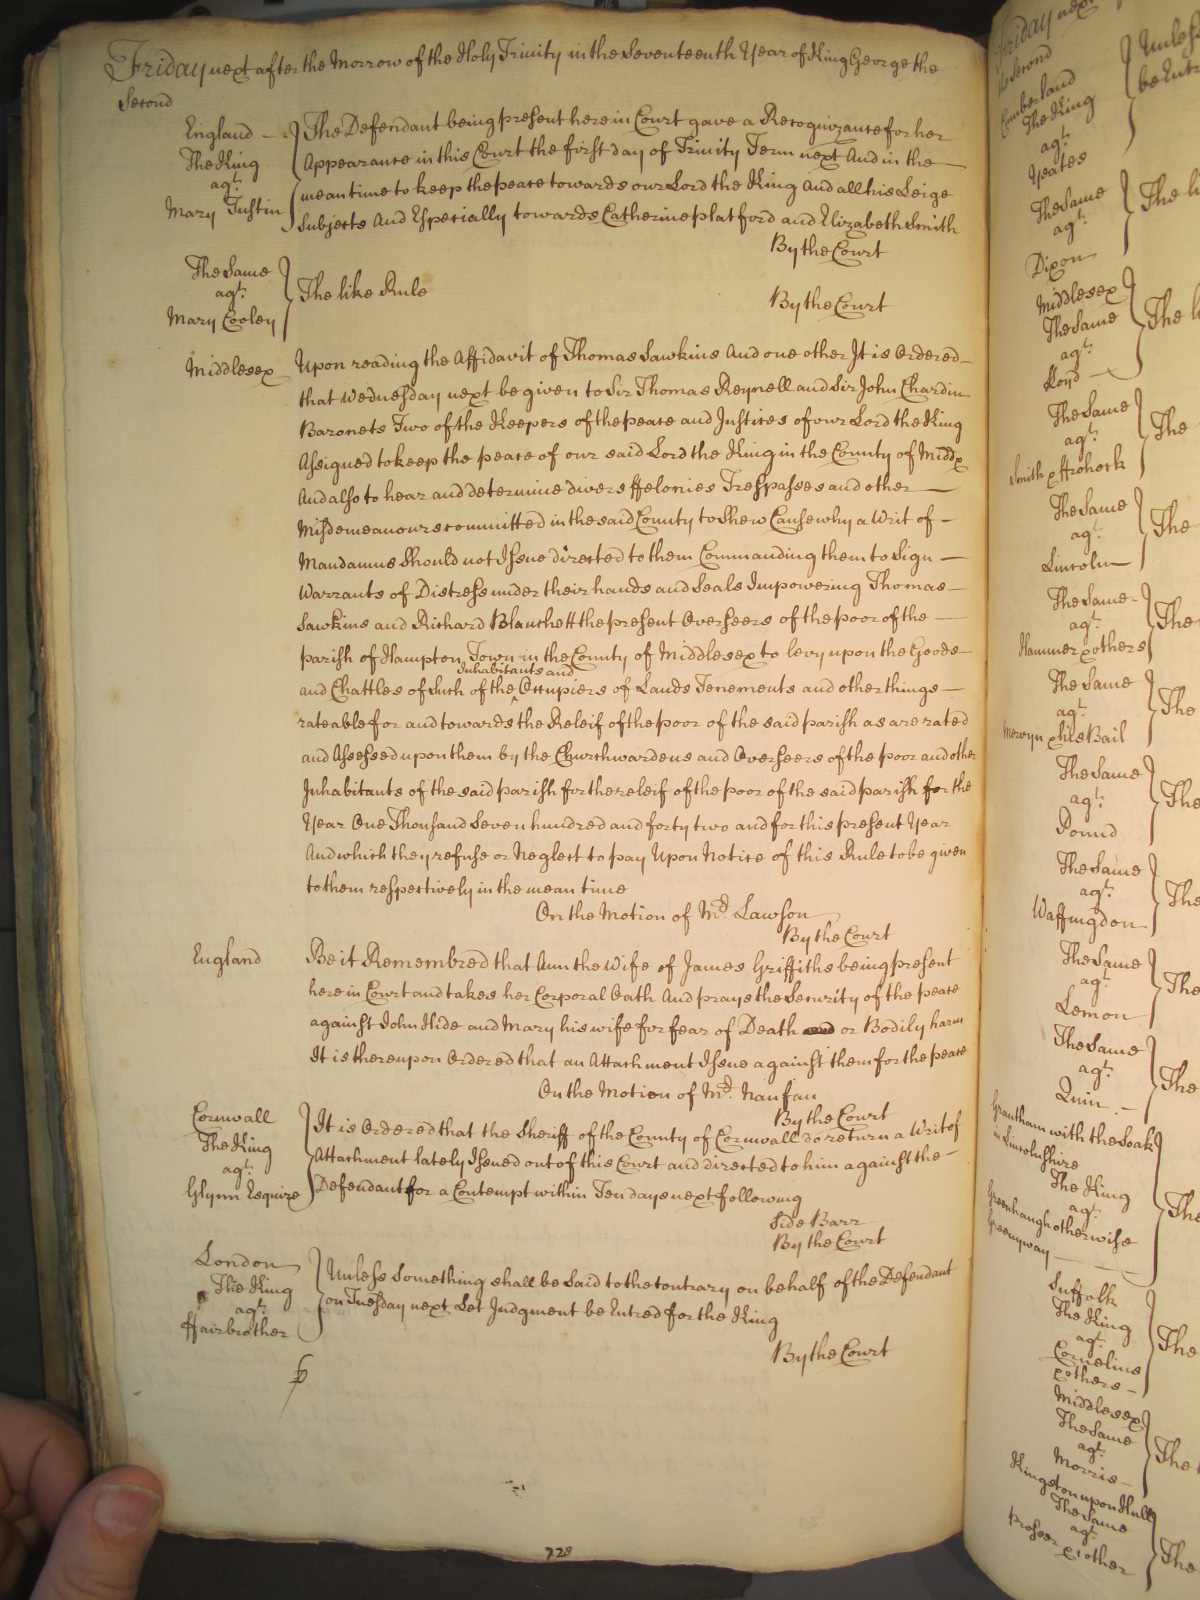 Friday next after the Morrow of the Holy Trinity in the Seventeenth Year of King George the
Second
England
The King
agt.
Mary Justin
The Defendant being present here in Court gave a Recognizance for her
Appearance in this Court the first day of Trinity Term next And in the
mean time to keep the peace towards our Lord the King And all his Leige
Subjects And Especially towards Catherine platford and Elizabeth Smith
By the Court
The Same
agt.
Mary Cooley
The like Rule
By the Court
Middlesex
Upon reading the Affidavit of Thomas Sawkins And one other It is Ordered
that Wednesday next be given to Sir Thomas Reynell and Sir John Chardin
Baronets Two of the Keepers of the peace and Justices of our Lord the King
Assigned to keep the peace of our said Lord the King in the County of Middx
And also to hear and determine divers ffelonies Trespasses and other
Misdemeanours committed in the said County to Shew Cause why a Writ of
Mandamus should not Issue directed to them Commanding them to Sign
Warrants of Distress under their hands and Seals Impowering Thomas
Sawkins and Richard Blanchett the present Overseers of the poor of the
parish of Hampton Town in the County of Middlesex to levy upon the Goods
Inhabitants and
and Chattles of Such of the Occupiers of Lands Tenements and other things
rateable for and towards the Releif of the poor of the said parish as are rated
and Assessed upon them by the Churchwardens and Overseers of the poor and other
Inhabitants of the said parish for the releif of the poor of the said parish for the
Year One Thousand Seven hundred and forty two and for this present Year
And which they refuse or Neglect to pay Upon Notice of this Rule to be given
to them respectively in the mean time
On the Motion of Mr. Lawson
By the Court
England
Be it Remembred that Ann the Wife of James Griffiths being present
here in Court and takes her Corporal Oath And prays the Security of the peace
against John Hide and Mary his wife for fear of Death or Bodily harm
It is thereupon Ordered that an Attachment Issue against them for the peace
On the Motion of Mr. Nanfan
By the Court
Cornwall
The King
agt.
Glynn Esquire
It is Ordered that the Sheriff of the County of Cornwall do return a Writ of
Attachment lately Issued out of this Court and directed to him against the
Defendant for a Contempt within Ten days next following
Side Barr
By the Court
London
The King
agt.
ffairbrother
Unless Something shall be Said to the contrary on behalf of the Defendant
on Tuesday next Let Judgment be Entred for the King
By the Court
228
Friday next
the Second
Cumberland
The King
agt.
Yeates
Unless
be Entr
The Same
agt.
Dixon
The li
Middlesex
The Same
agt.
Lloyd
The l
The Same
agt.
Smith & ffrohock
The
The Same
agt.
Lincoln
The
The Same
agt.
Hammer & others
The
The Same
agt.
Merwyn & his Bail
The
The Same
agt.
Pound
The
The Same
agt.
Waffingdon
The
The Same
agt.
Lemon
The
The Same
agt.
Quin
The
Grantham with the Soak
in Lincolnshire
The King
agt.
Greenhaugh otherwise
Greenway
The
Suffolk
The King
agt.
Cornelius
& others
The
Middlesex
The Same
agt.
Morris
The
Kingston upon Hull
The Same
agt.
Prosser & other
The